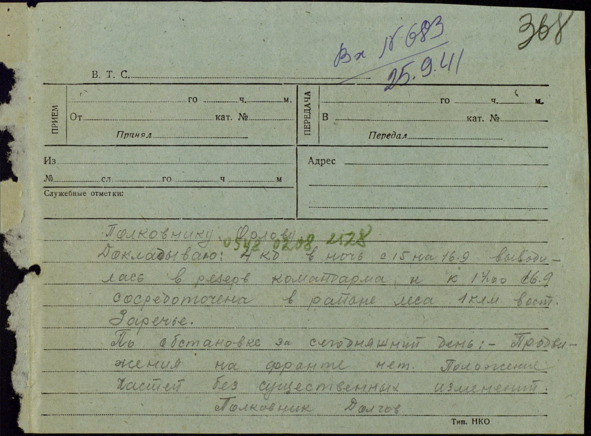 368
Вх №683
25.9.41
В. Т. С.
ПРИЕМ
го ч. м.
От кат. №
Принял
ПЕРЕДАЧА
го ч. м.
В кат. №
Передал
Из
№ сл. го ч м
Служебные отметки:
Адрес
Полковнику Орлову
0542 0208 2528
Докладываю: 4 кд в ночь с 15 на 16.9 выводи-
лась в резерв командарма и к 16.9
сосредоточена в районе леса 1 клм вост.
Заречье.
По обстановке за сегодняшний день: - Продви-
жения на фронте нет. Положение
частей без существенных изменений.
Полковник Долгов
Тип. НКО